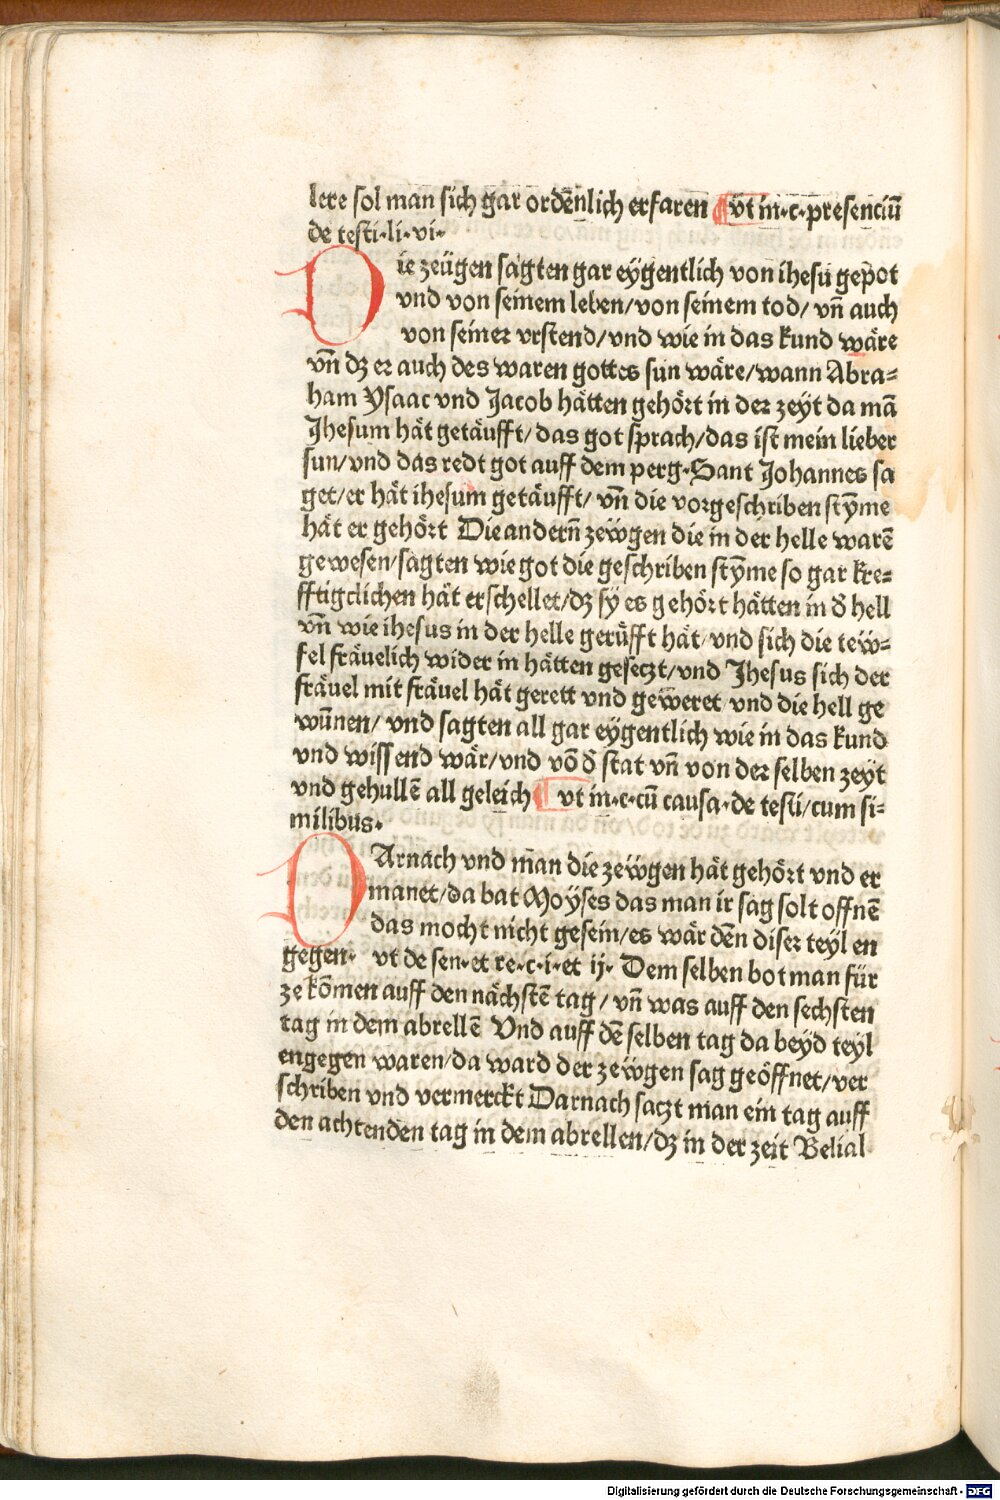 lere sol man sich gar ordēnlich erfaren ¶ vt in·c·presenciū
de testi·li·vi·
Die zeügen sagten gar eÿgentlich von ihesu gepot
vnd von seinem leben/von seinem tod/ vn̄ auch
von seiner vrstend/vnd wie in das kund wäre
vn̄ dz er auch des waren gottes sun wäre/wann Abra=
ham Ysaac vnd Jacob hätten gehört in der zeÿt da mā
Jhesum hät getäufft/das got sprach/das ist mein lieber
sun/vnd das redt got auff dem perg·Sant Johannes sa
get/er hät ihesum getäufft/ vn̄ die vorgeschriben stȳme
hät er gehört Die andern̄ zeẅgen die in der helle warē
gewesen/sagten wie got die geschriben stȳme so gar kre=
fftigclichen hät erschellet/dz sÿ es gehört hätten in d̄ hell
vn̄ wie ihesus in der helle gerůfft hät/vnd sich die tew=
fel fräuelich wider in hätten geseczt/vnd Jhesus sich der
fräuel mit fräuel hät gerett vnd geẅeret vnd die hell ge
wūnen/ vnd sagten all gar eÿgentlich wie in das kund
vnd wissend wär/vnd vō d̄ stat vn̄ von der selben zeÿt
vnd gehullē all geleich ¶ vt in·c·cū causa·de testi/cum si=
milibus·
DArnach vnd man die zeẅgen hät gehört vnd er
manet/da bat Moÿses das man ir sag solt offnē
das mocht nicht gesein/es wär dēn diser teyl en
gegen· vt de sen·et re·c·i·et ij· Dem selben bot man für
ze kōmen auff den nächstē tag/ vn̄ was auff den sechsten
tag in dem abrellē Vnd auff dē selben tag da beÿd teÿl
engegen waren/da ward der zeẅgen sag geöffnet/ver
schriben vnd vermerckt Darnach saczt man ein tag auff
den achtenden tag in dem abrellen/dz in der zeit Belial
Digitalisierung gefördert durch die Deutsche Forschungsgemeinschaft - DFG